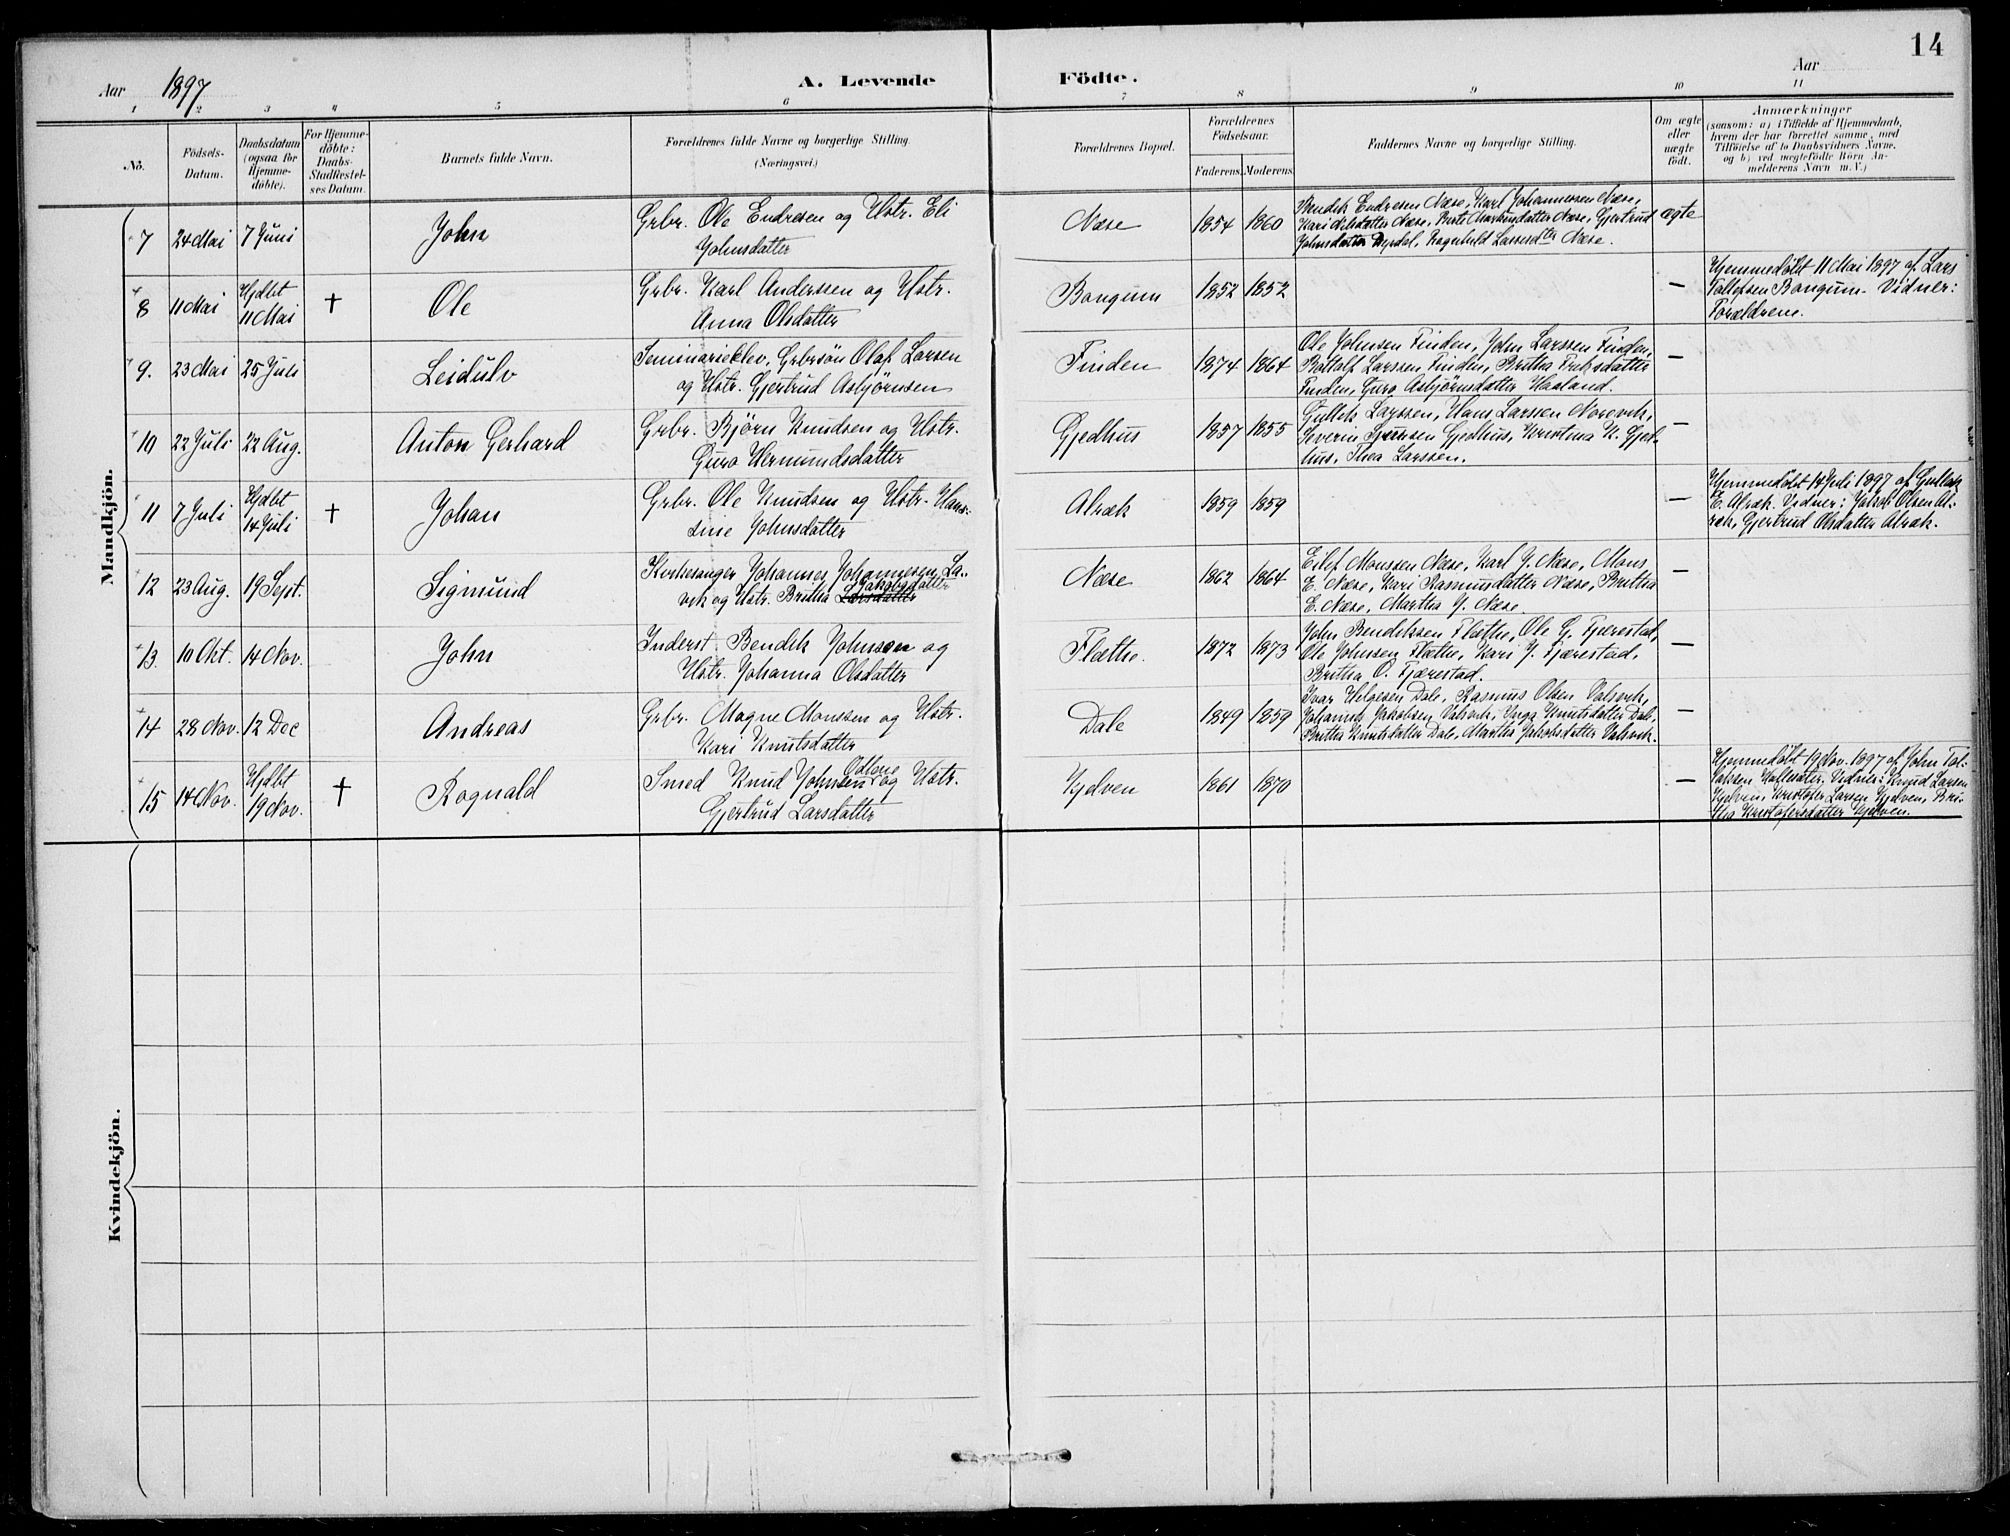 14
Aar 1897 A. Levende Födte. Aar
1 2 3 4 5 6 7 8 9 10 11
No.
Födsels-Datum.
Daabsdatum (ogsaa for Hjemme-döbte).
For Hjemme-döbte: Daabs-Stadfæstel-ses Datum.
Barnets fulde Navn.
Forældrenes fulde Navne og borgerlige Stilling.
(Næringsvei.)
Forældrenes Bopæl.
Forældrenes Födselsaar.
Faderens. Moderens.
Faddernes Navne og borgerlige Stilling.
Om ægte eller uægte födt.
Anmærkninger
(saasom: a) i Tilfælde af Hjemmedaab,
hvem der har forrettet samme, med
Tilföielse af to Daabsvidners Navne,
og b) ved uægtefödte Börn An-
melderens Navn m. V.)
Mandkjön.
7 24 Mai 7 Juni John
Grbr. Ole Endresen og Hstr. Eli
Johnsdatter
Næse 1854 1860
Bendik Endresen Næse, Karl Johannessen Næse,
Kari Nilsdatter Næse, Brite Markusdatter Næse, Gjertrud
Johnsdatter Nyrdal, Ragnhild Larsesdter Næse.
ægte
8 11 Mai Hjdbt 11 Mai † Ole
Grbr. Karl Anderssen og Hstr.
Anna Olsdatter
Bangum 1852 1852 —
Hjemmedøbt 11 Mai 1897 af Lars
Tollefsen Bongum. Vidner:
Forældrene.
9. 23 Mai 25 Juli Leidulv
Seminarieelev, Grbrsön Olaf Larsen
og Hstr. Gjertrud Asbjörnsen
Finden 1874 1864
Ole Johnsen Finden, John Larssen Finden,
Bottolf Larssen Finden, Britha Fritzsdatter
Finden, Guro Asbjörnsdatter Haaland.
—
10 22 Juli 22 Aug. Anton Gerhard
Grbr. Björn Knudsen og Hstr.
Guro Vermundsdatter
Gjedhus 1857 1855
Gullek Larssen, Hans Larssen Norevik,
Severin Sjurssen Gjedhus, Kristina K. Gjed-
hus, Thea Larssen.
—
11 7 Juli Hjdbt 14 Juli † Johan
Grbr. Ole Knudsen og Hstr. Han-
sine Johnsdatter
Alræk 1859 1859 —
Hjemmedöbt 14 Juli 1897 af Gullek
E. Alræk. Vidner: Jakob Olsen Al-
ræk, Gjertrud Olsdatter Alræk.
12 23 Aug. 19 Sept. Sigmund
Kirkesanger Johannes Johannesen La-
vik og Hstr. Britha Larsdatter Jakobsdatter
Næse 1862 1864
Eilef Monssen Næse, Karl J. Næse, Mons
E. Næse, Kari Rasmusdatter Næse, Brittha
E. Næse, Martha J. Næse.
—
13 10 Okt. 14 Nov. John
Inderst Bendik Johnsen og
Hstr. Johanna Olsdatter
Flæthe. 1872 1873
John Bendikssen Flæthe, Ole G. Fjærestad,
Ole Johnsen Flæthe, Kari J. Fjærestad,
Britha O. Fjærestad.
—
14 28 Nov. 12 Dec Andreas
Grbr. Magne Monssen og Hstr.
Kari Knutsdatter
Dale 1849 1859
Ivar Helgesen Dale, Rasmus Olsen Valsvik,
Johannes Jakobsen Valsvik, Inga Knutsdatter Dale,
Britha Knutsdatter Dale, Martha Jakobsdatter Valsvik.
—
15 14 Nov. Hjdbt 19 Nov. † Rognald
Smed Knud Johnsen Odlone og Hstr.
Gjertrud Larsdatter
Kjelven 1861 1870 —
Hjemmedöbt 19 Nov. 1897 af John Tol-
laksen Vidner: Knud Larsen
Kjelven, Kristofer Larsen Kjelven, Bri-
tha Kristofersdatter Kjelven.
Kvindekjön.